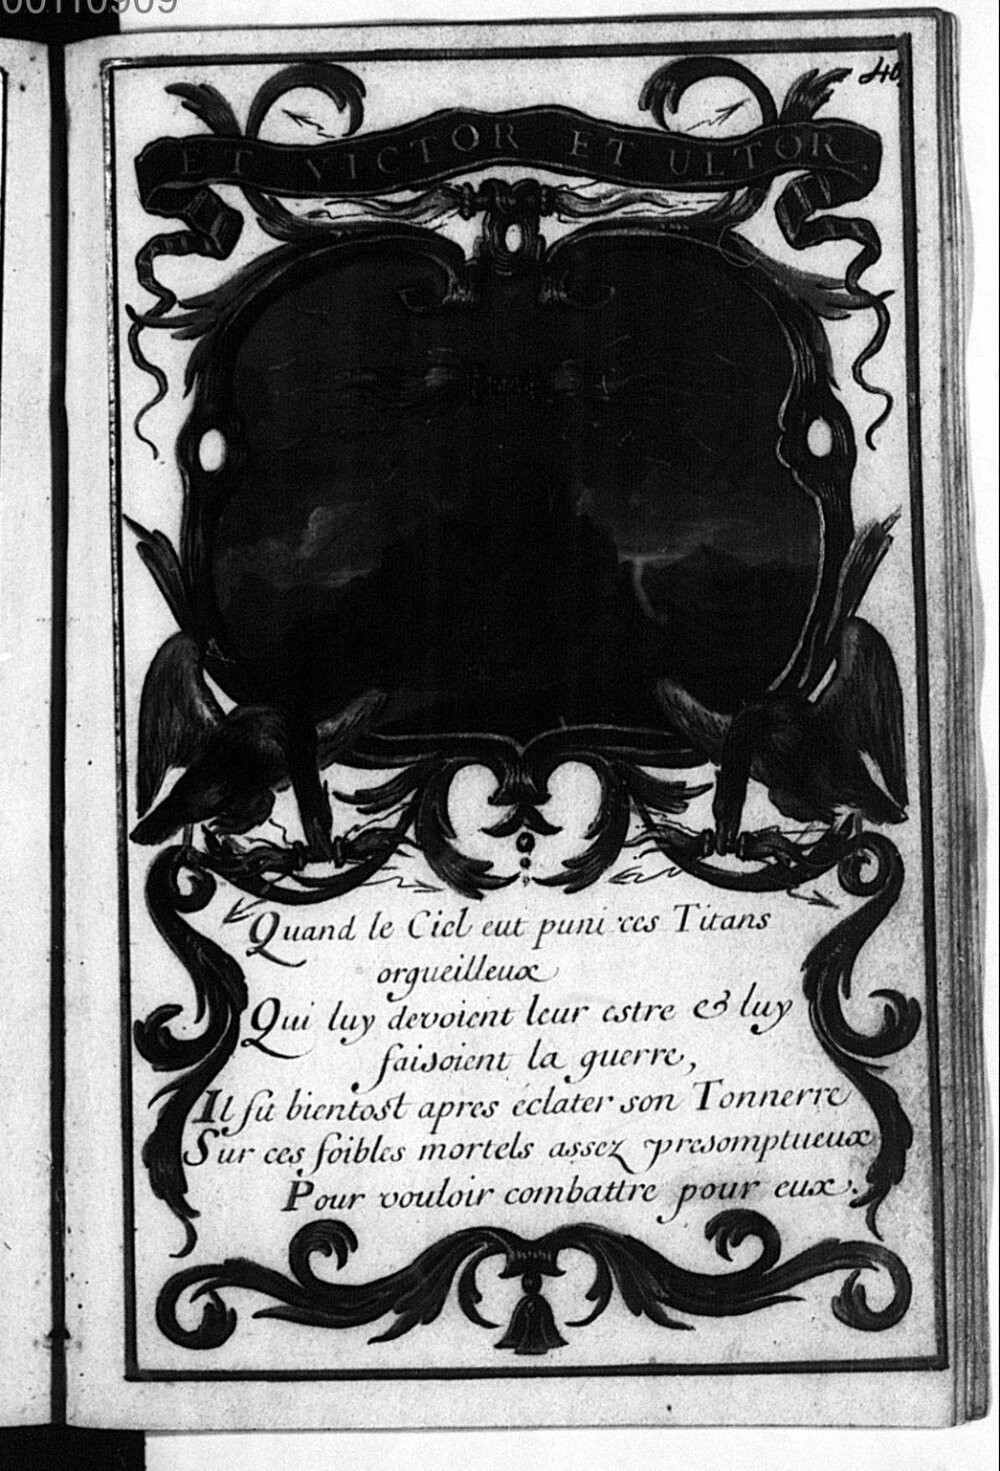 00110909
40
ET VICTOR ET ULTOR.
Quand le Ciel eut puni ces Titans
orgueilleux
Qui luy devoient leur estre & luy
faisoient la guerre,
Il fit bientost apres éclater son Tonnerre
Sur ces foibles mortels assez presomptueux
Pour vouloir combattre pour eux.